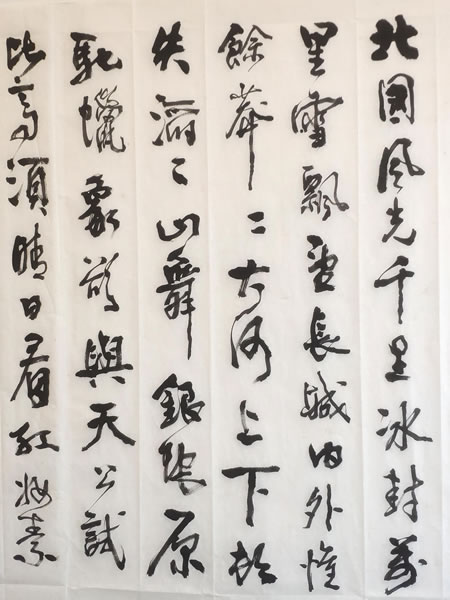 北國風光千里冰封萬
里雪飄望長城内外惟
餘莽〻大河上下頓
失滔〻山舞銀蛇原
馳蠟象欲與天公試
比高須晴日看紅妝素